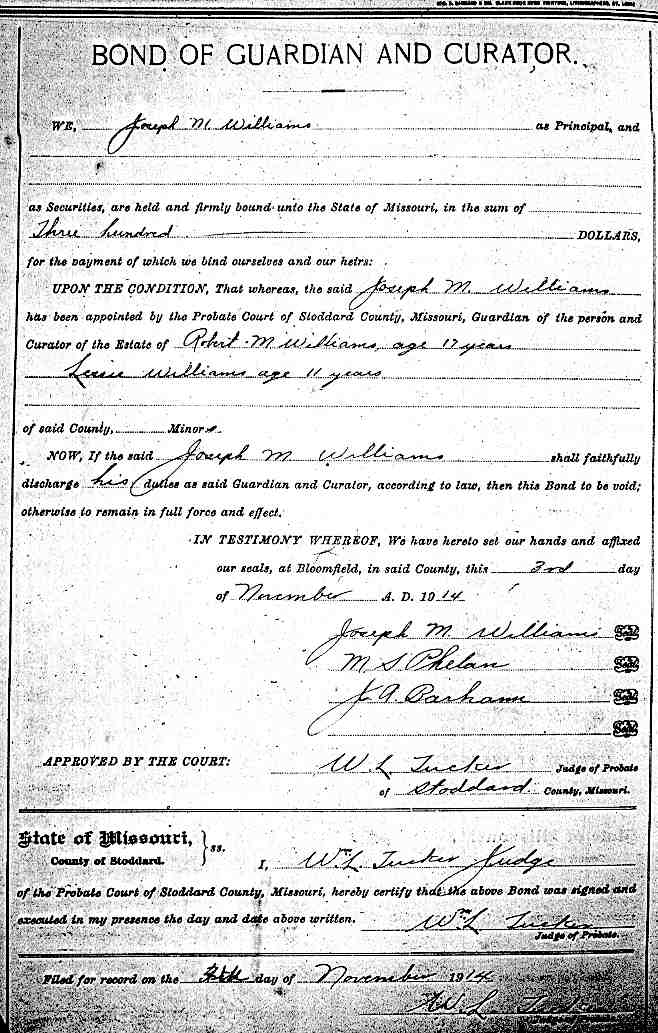 BOND OF GUARDIAN AND CURATOR.
WE, Joseph M. Williams as Principal, and
as Securities, are held and firmly bound unto the State of Missouri, in the sum of
Three hundred DOLLARS,
for the payment of which we bind ourselves and our heirs:
UPON THE CONDITION, That whereas, the said Joseph M. Williams
has been appointed by the Probate Court of Stoddard County, Missouri, Guardian of the person and
Curator of the Estate of Robt. M Williams, age 17 years
Lessie Williams age 11 years
of said County, Minors.
NOW, If the said Joseph M Williams shall faithfully
discharge his duties as said Guardian and Curator, according to law, then this Bond to be void;
otherwise to remain in full force and effect.
IN TESTIMONY WHEREOF, We have hereto set our hands and affixed
our seals, at Bloomfield, in said County, this 3rd day
of November A. D. 1914
Joseph M. Williams Seal
M S Phelan Seal
J. A. Barham Seal
Seal
APPROVED BY THE COURT: W L Tucker Judge of Probate
of Stoddard County, Missouri.
State of Missouri, } ss.
County of Stoddard.
I, Wm L Tucker Judge
of the Probate Court of Stoddard County, Missouri, hereby certify that the above Bond was signed and
executed in my presence the day and date above written. Wm L Tucker
Judge of Probate.
Filed for record on the day of November 1914
Wm L Tucker